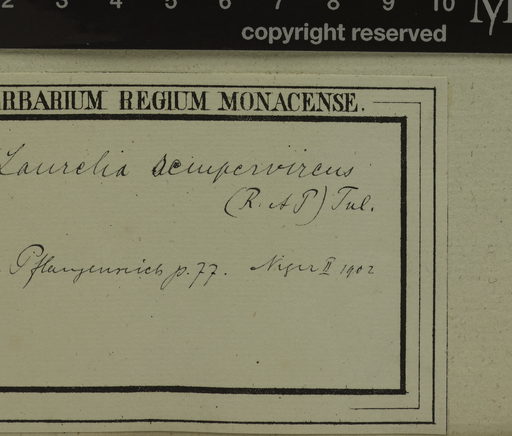 2 3 4 5 6 7 8 9 10 M
copyright reserved
RBARIUM REGIUM MONACENSE.
Laurelia sempervirens
(R. et P) Tul.
Pflanzenreich p. 77. II 1902